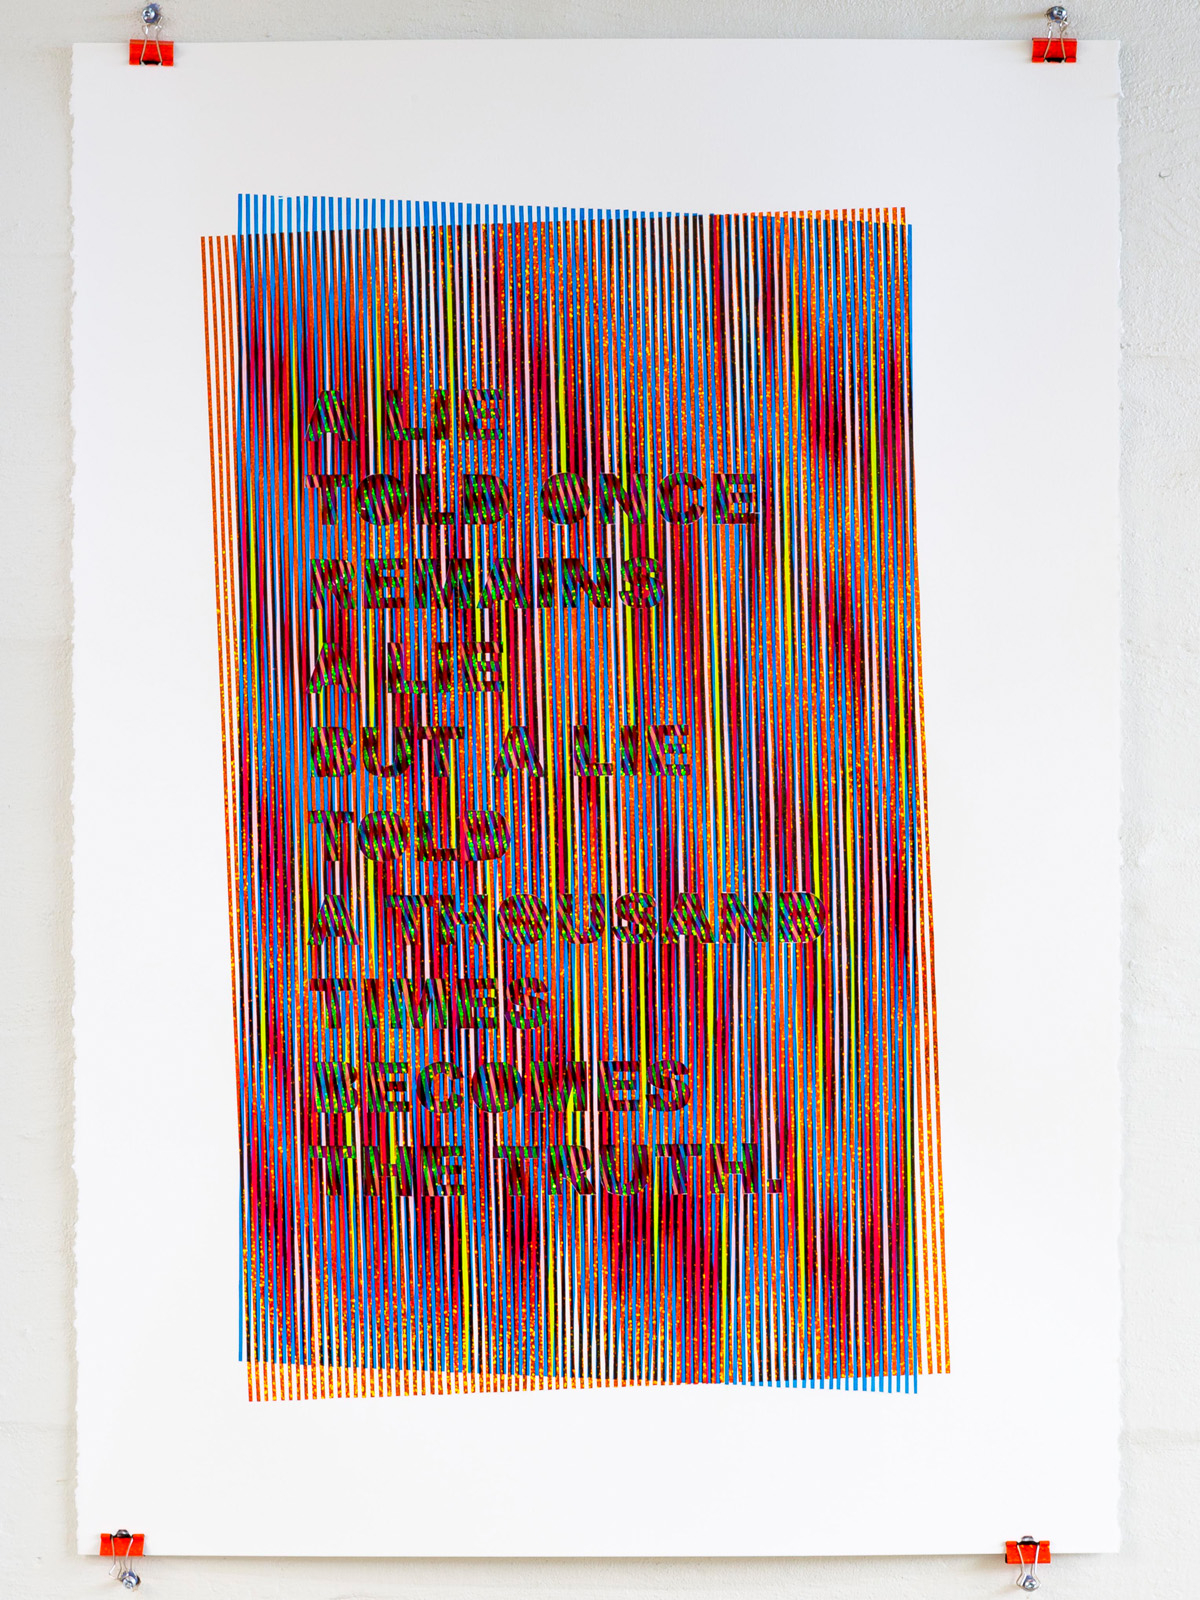 A LIE
TOLD ONCE
REMAINS
A LIE
BUT A LIE
TOLD
A THOUSAND
TIMES
BECOMES
THE TRUTH.